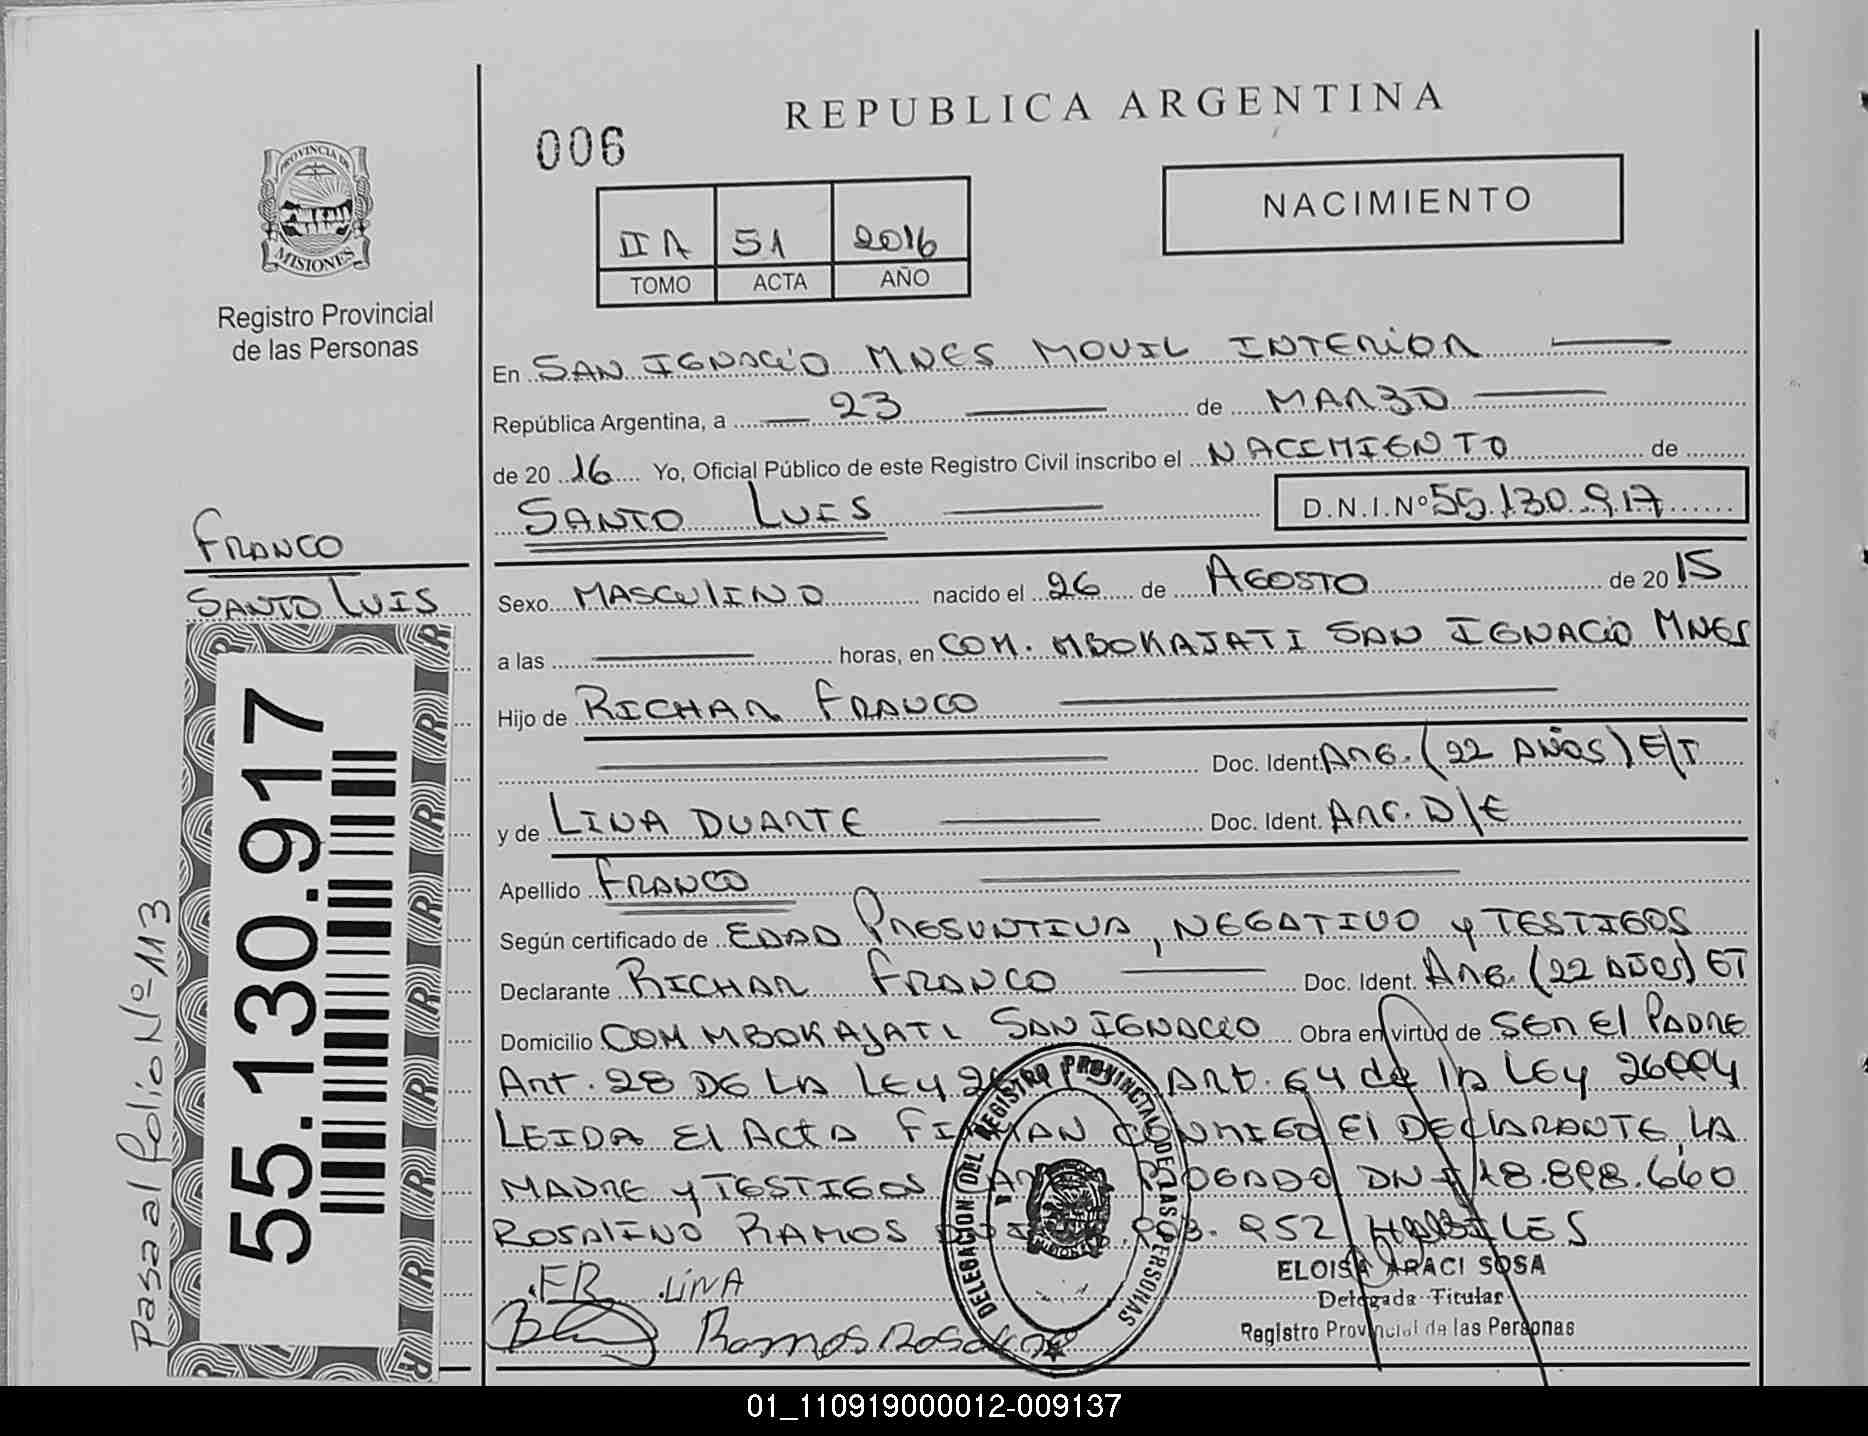 REPUBLICA ARGENTINA
006
NACIMIENTO
II A 51 2016
TOMO ACTA AÑO
PROVINCIA DE
MISIONES
Registro Provincial
de las Personas
En SAN IGNACIO MNES MOVIL INTERIOR
República Argentina, a 23 de MARZO
de 2016 Yo, Oficial Público de este Registro Civil inscribo el NACIMIENTO de
SANTO LUIS D.N.I.Nº 55.130.917
FRANCO
SANTO LUIS
Sexo MASCULINO nacido el 26 de AGOSTO de 2015
a las horas, en COM. MBOKAJATI SAN IGNACIO MNES
Hijo de RICHAR FRANCO
Doc. Ident ARG. (22 AÑOS) E/T
y de LINA DUARTE Doc. Ident. ARG. D/E
Apellido FRANCO
Según certificado de EDAD PRESUNTIVA, NEGATIVO y TESTIGOS
Declarante RICHAR FRANCO Doc. Ident. ARG. (22 AÑOS) ET
Domicilio COM MBOKAJATI SAN IGNACIO Obra en virtud de SER El PADRE
ART. 28 DE LA LEY ART. 64 de la LEY 26994
LEIDA El ACTA FIRMAN CONMIGO El DEClARANTE, LA
MADRE y TESTIGOS DNI 18.898.660
ROSALINO RAMOS 952 HABILES
FR LINA
Ramos
ELOISA ARACI SOSA
Delegada Titular
Registro Provincial de las Personas
DELEGACION DEL REGISTRO PROVINCIAL DE LAS PERSONAS
MISIONES
55.130.917
Pasa al Folio Nº 113
01_110919000012-009137